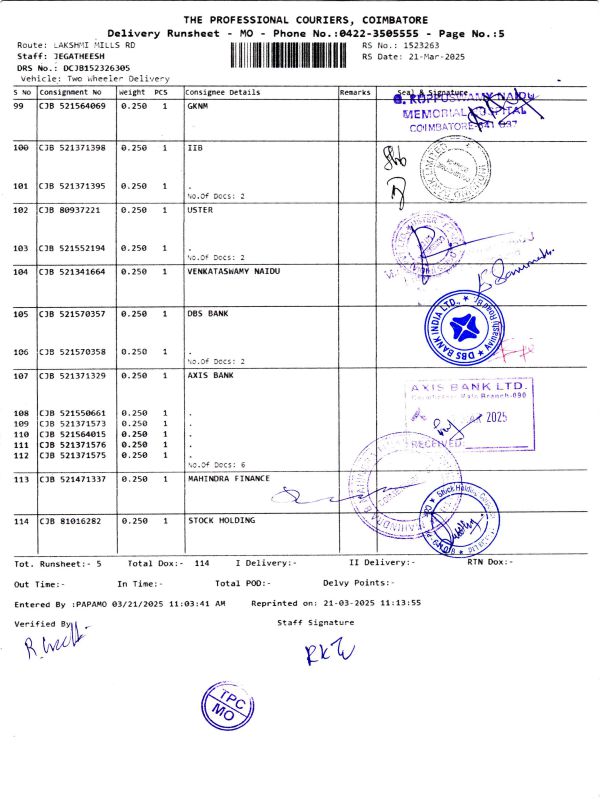 THE PROFESSIONAL COURIERS, COIMBATORE
Delivery Runsheet - MO - Phone No.:0422-3505555 - Page No.:5
Route: LAKSHMI MILLS RD RS No.: 1523263
Staff: JEGATHEESH RS Date: 21-Mar-2025
DRS No.: DCJB152326305
Vehicle: Two Wheeler Delivery
S No Consignment No Weight PCS Consignee Details Remarks Seal & Signature
99 CJB 521564069 0.250 1 GKNM
G. KUPPUSWAMY NAIDU
MEMORIAL HOSPITAL
COIMBATORE-641 037
100 CJB 521371398 0.250 1 IIB
101 CJB 521371395 0.250 1 .
No.Of Docs: 2
102 CJB 80937221 0.250 1 USTER
103 CJB 521552194 0.250 1 .
No.Of Docs: 2
104 CJB 521341664 0.250 1 VENKATASWAMY NAIDU
105 CJB 521570357 0.250 1 DBS BANK
DBS BANK INDIA LTD.,
106 CJB 521570358 0.250 1 .
No.Of Docs: 2
107 CJB 521371329 0.250 1 AXIS BANK
AXIS BANK LTD.
Coimbatore Main Branch-090
2025
RECEIVED
108 CJB 521550661 0.250 1 .
109 CJB 521371573 0.250 1 .
110 CJB 521564015 0.250 1 .
111 CJB 521371576 0.250 1 .
112 CJB 521371575 0.250 1 .
No.Of Docs: 6
113 CJB 521471337 0.250 1 MAHINDRA FINANCE
114 CJB 81016282 0.250 1 STOCK HOLDING
Stock Holding
Tot. Runsheet:- 5 Total Dox:- 114 I Delivery:- II Delivery:- RTN Dox:-
Out Time:- In Time:- Total POD:- Delvy Points:-
Entered By :PAPAMO 03/21/2025 11:03:41 AM Reprinted on: 21-03-2025 11:13:55
Verified By Staff Signature
TPC
MO